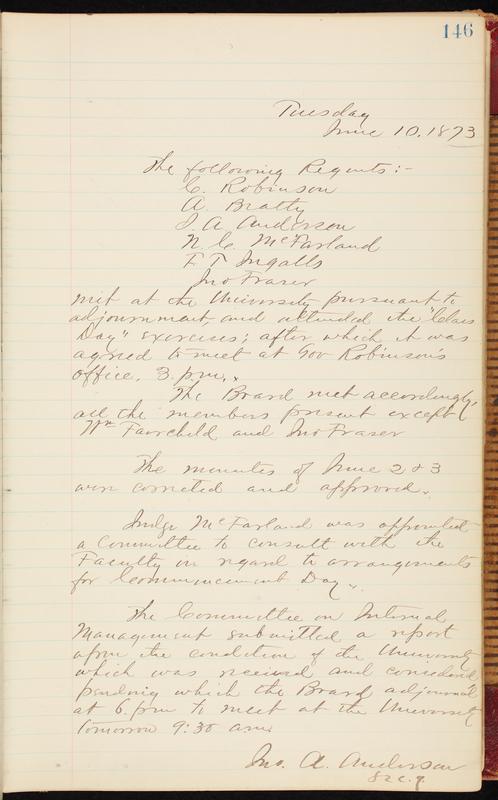 146
Tuesday
June 10. 1873
The following Regents:-
C. Robinson
A. Beatty
J. A. Anderson
N. C. McFarland
F T Ingalls
Jno Fraser
met at the University pursuant to
adjournment, and attended the "Class
Day" exercises; after which it was
agreed to meet at Gov Robinson's
office. 3. p.m.
The Board met accordingly,
all the members present except
Wm Fairchild and Jno Fraser
The minutes of June 2 & 3
were corrected and approved.
Judge McFarland was appointed
a Committee to consult with the
Faculty in regard to arrangements
for Commencement Day.
The Committee on Internal
Management submitted a report
upon the condition of the University
which was received and considered
pending which the Board adjourned
at 6. pm to meet at the University
tomorrow 9:30 am.
Jno. A. Anderson
Secy.